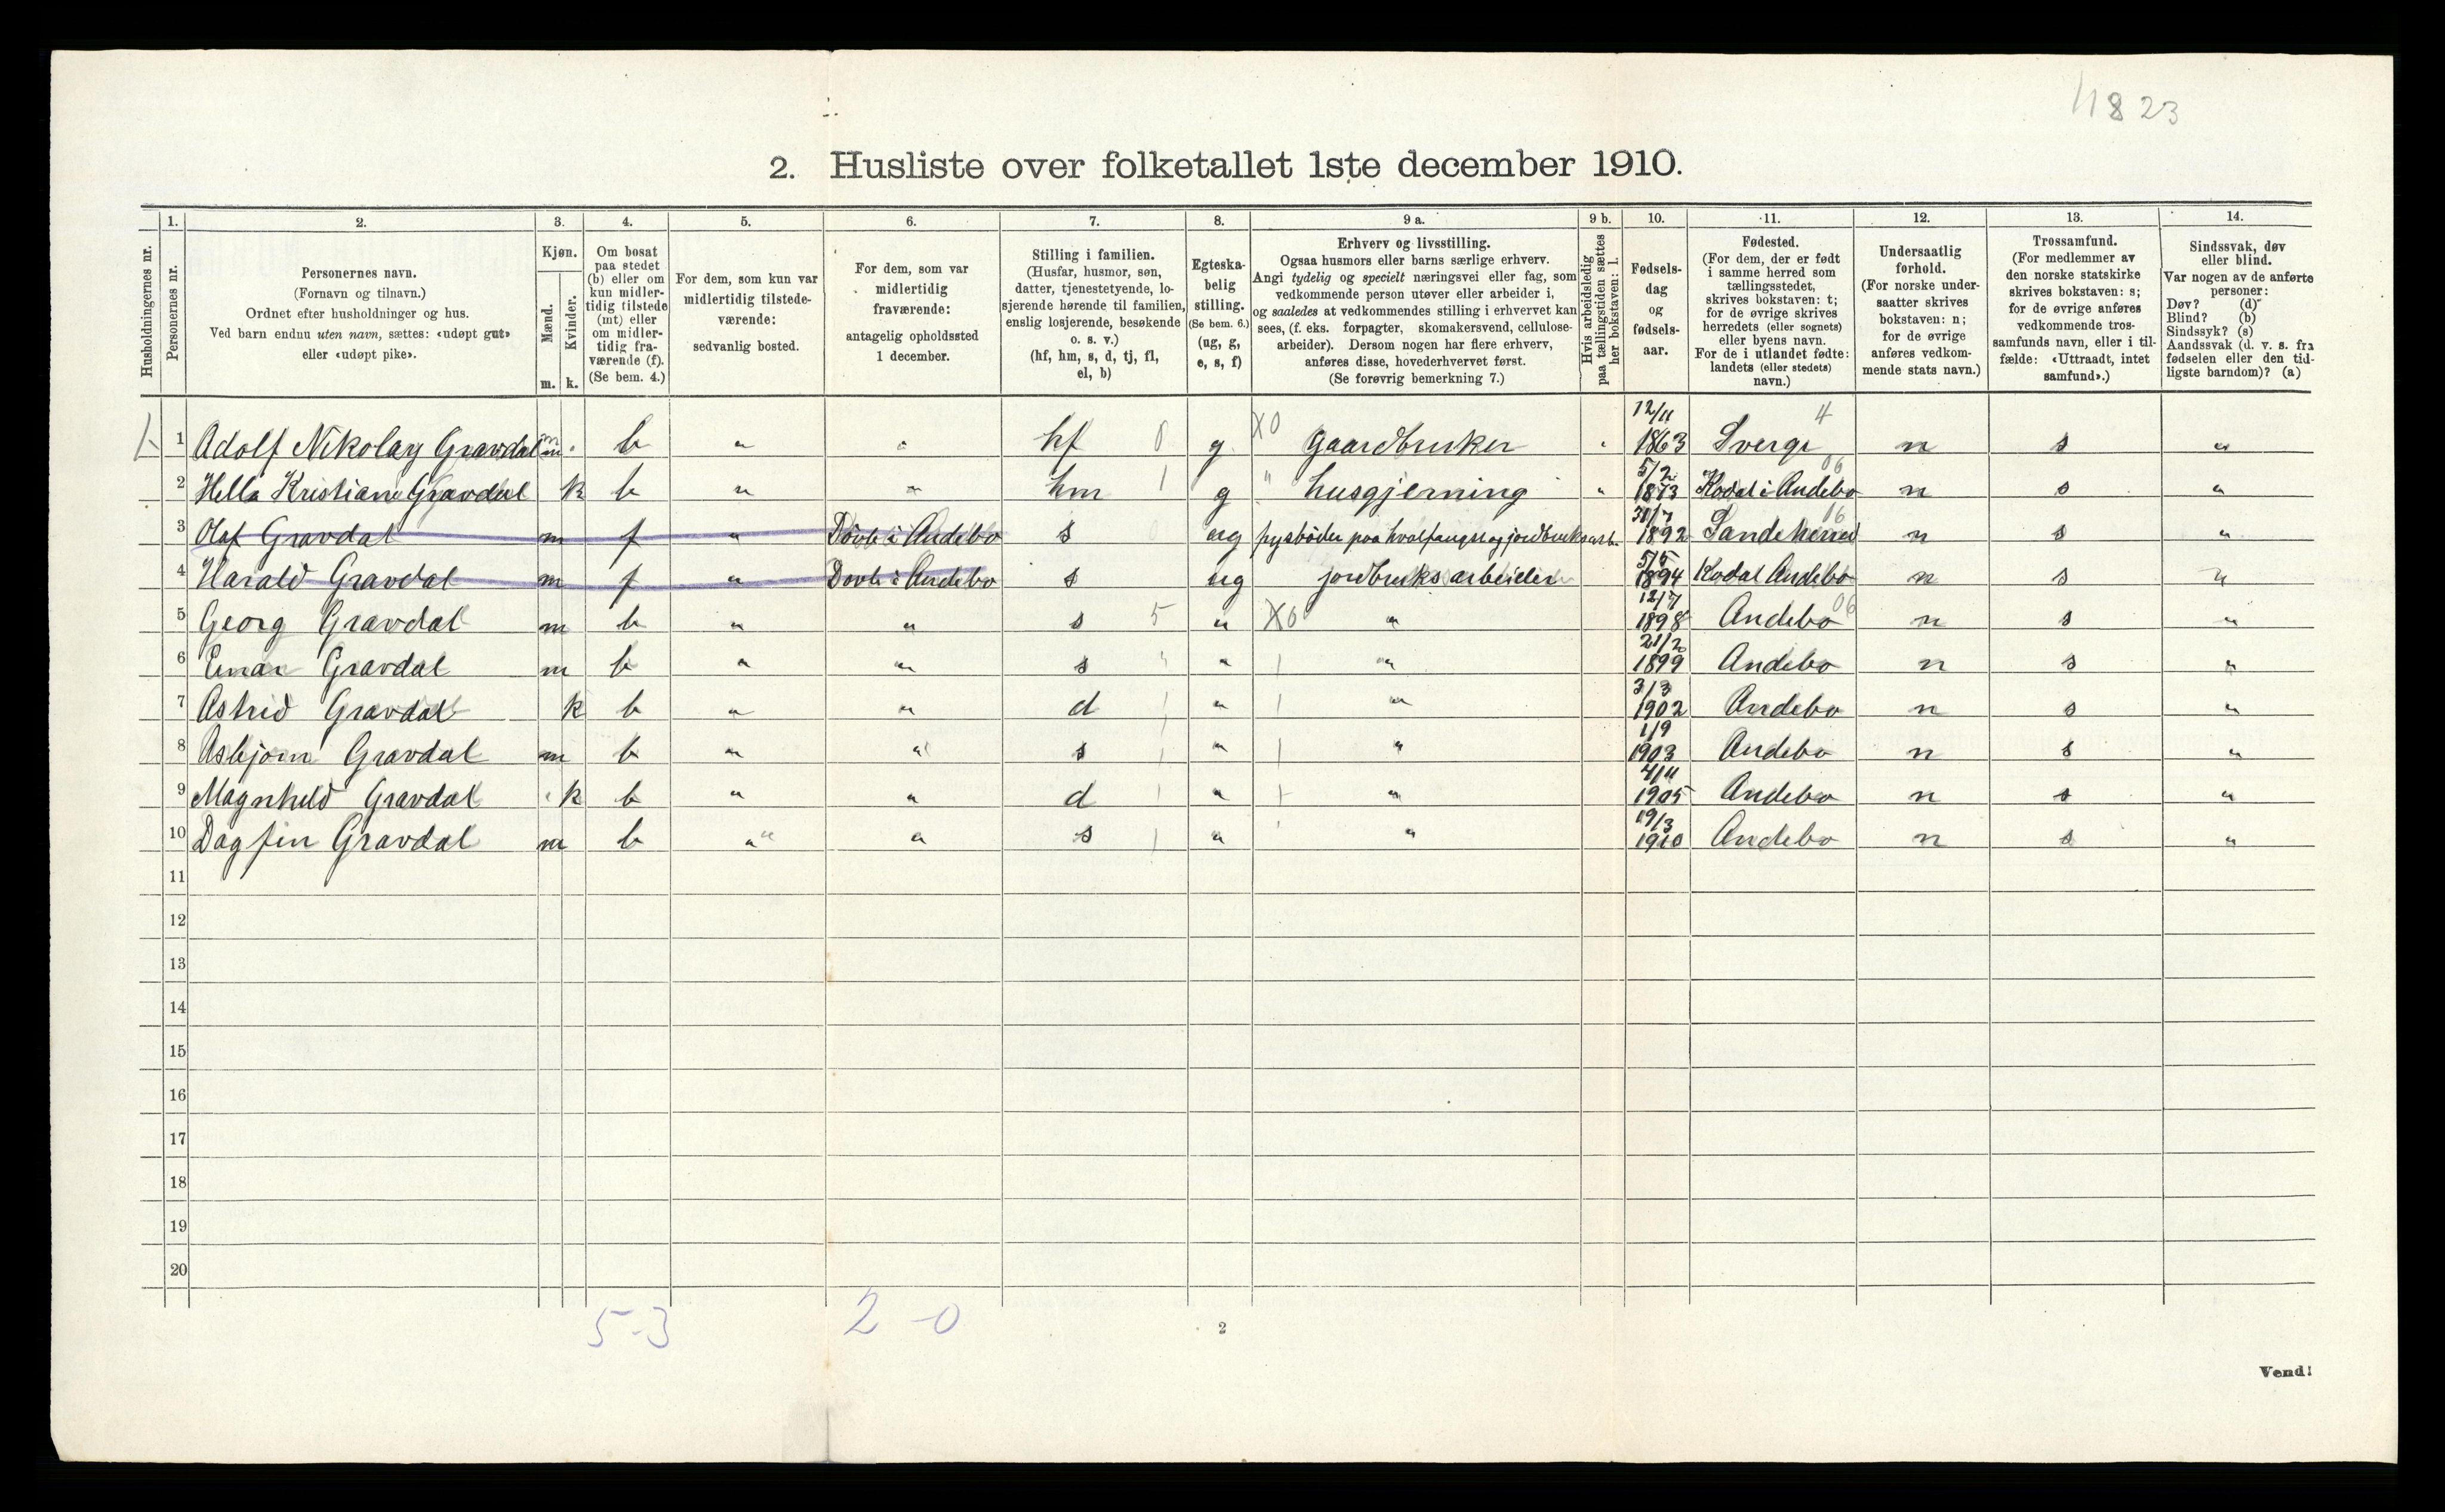 11823
2. Husliste over folketallet 1ste december 1910.
Husholdningernes nr.
1. 2. 3. 4. 5. 6. 7. 8. 9 a. 9 b. 10. 11. 12. 13. 14.
Personernes nr.
Personernes navn.
(Fornavn og tilnavn.)
Ordnet efter husholdninger og hus.
Ved barn endnu uten navn, sættes: «udøpt gut»
eller «udøpt pike».
Kjøn.
Mænd.
Kvinder.
m. k.
Om bosat
paa stedet
(b) eller om
kun midler-
tidig tilstede
(mt) eller
om midler-
tidig fra-
værende (f).
(Se bem. 4.)
For dem, som kun var
midlertidig tilstede-
værende:
sedvanlig bosted.
For dem, som var
midlertidig
fraværende:
antagelig opholdssted
1 december.
Stilling i familien.
(Husfar, husmor, søn,
datter, tjenestetyende, lo-
sjerende hørende til familien,
enslig losjerende, besøkende
o. s. v.)
(hf, hm, s, d, tj, fl,
el, b)
Egteska-
belig
stilling.
(Se bem. 6.)
(ug, g,
e, s, f)
Erhverv og livsstilling.
Ogsaa husmors eller barns særlige erhverv.
Angi tydelig og specielt næringsvei eller fag, som
vedkommende person utøver eller arbeider i,
og saaledes at vedkommendes stilling i erhvervet kan
sees, (f. eks. forpagter, skomakersvend, cellulose-
arbeider). Dersom nogen har flere erhverv,
anføres disse, hovederhvervet først.
(Se forøvrig bemerkning 7.)
Hvis arbeidsledig
paa tællingstiden sættes
her bokstaven: l.
Fødsels-
dag
og
fødsels-
aar.
Fødested.
(For dem, der er født
i samme herred som
tællingsstedet,
skrives bokstaven: t;
for de øvrige skrives
herredets (eller sognets)
eller byens navn.
For de i utlandet fødte:
landets (eller stedets)
navn.)
Undersaatlig
forhold.
(For norske under-
saatter skrives
bokstaven: n;
for de øvrige
anføres vedkom-
mende stats navn.)
Trossamfund.
(For medlemmer av
den norske statskirke
skrives bokstaven: s;
for de øvrige anføres
vedkommende tros-
samfunds navn, eller i til-
fælde: «Uttraadt, intet
samfund».)
Sindssvak, døv
eller blind.
Var nogen av de anførte
personer:
Døv? (d)
Blind? (b)
Sindssyk? (s)
Aandssvak (d. v. s. fra
fødselen eller den tid-
ligste barndom)? (a)
1 Adolf Nikolay Gravdal m b " " hf 0 g X0 gaardbruker " 12/11 1863 Sverge 4 n s "
2 Hella Kristiane Gravdal k b " " hm 1 g " husgjerning " 5/2 1873 Kodal i Andebo 06 n s "
3 Olaf Gravdal m f " Dövle i Andebo s ug fyrböder paa hvalfangst og jordbruksarb. 30/7 1892 Sandeherred n s "
4 Harald Gravdal m f " Dovle i Andebo s ug jordbruks arbeider 5/5 1894 Kodal Andebo n s "
5 Georg Gravdal m b " " s 5 " X0 " 12/7 1898 Andebo 06 n s "
6 Einar Gravdal m b " " s " " " 21/2 1899 Andebo n s "
7 Astrid Gravdal k b " " d " " 3/3 1902 Andebo n s "
8 Asbjørn Gravdal m b " " s " " 1/9 1903 Andebo n s "
9 Magnhild Gravdal k b " " d " " 4/11 1905 Andebo n s "
10 Dagfin Gravdal m b " " s " " 19/3 1910 Andebo n s "
11
12
13
14
15
16
17
18
19
20
5-3 2-0
2
Vend!